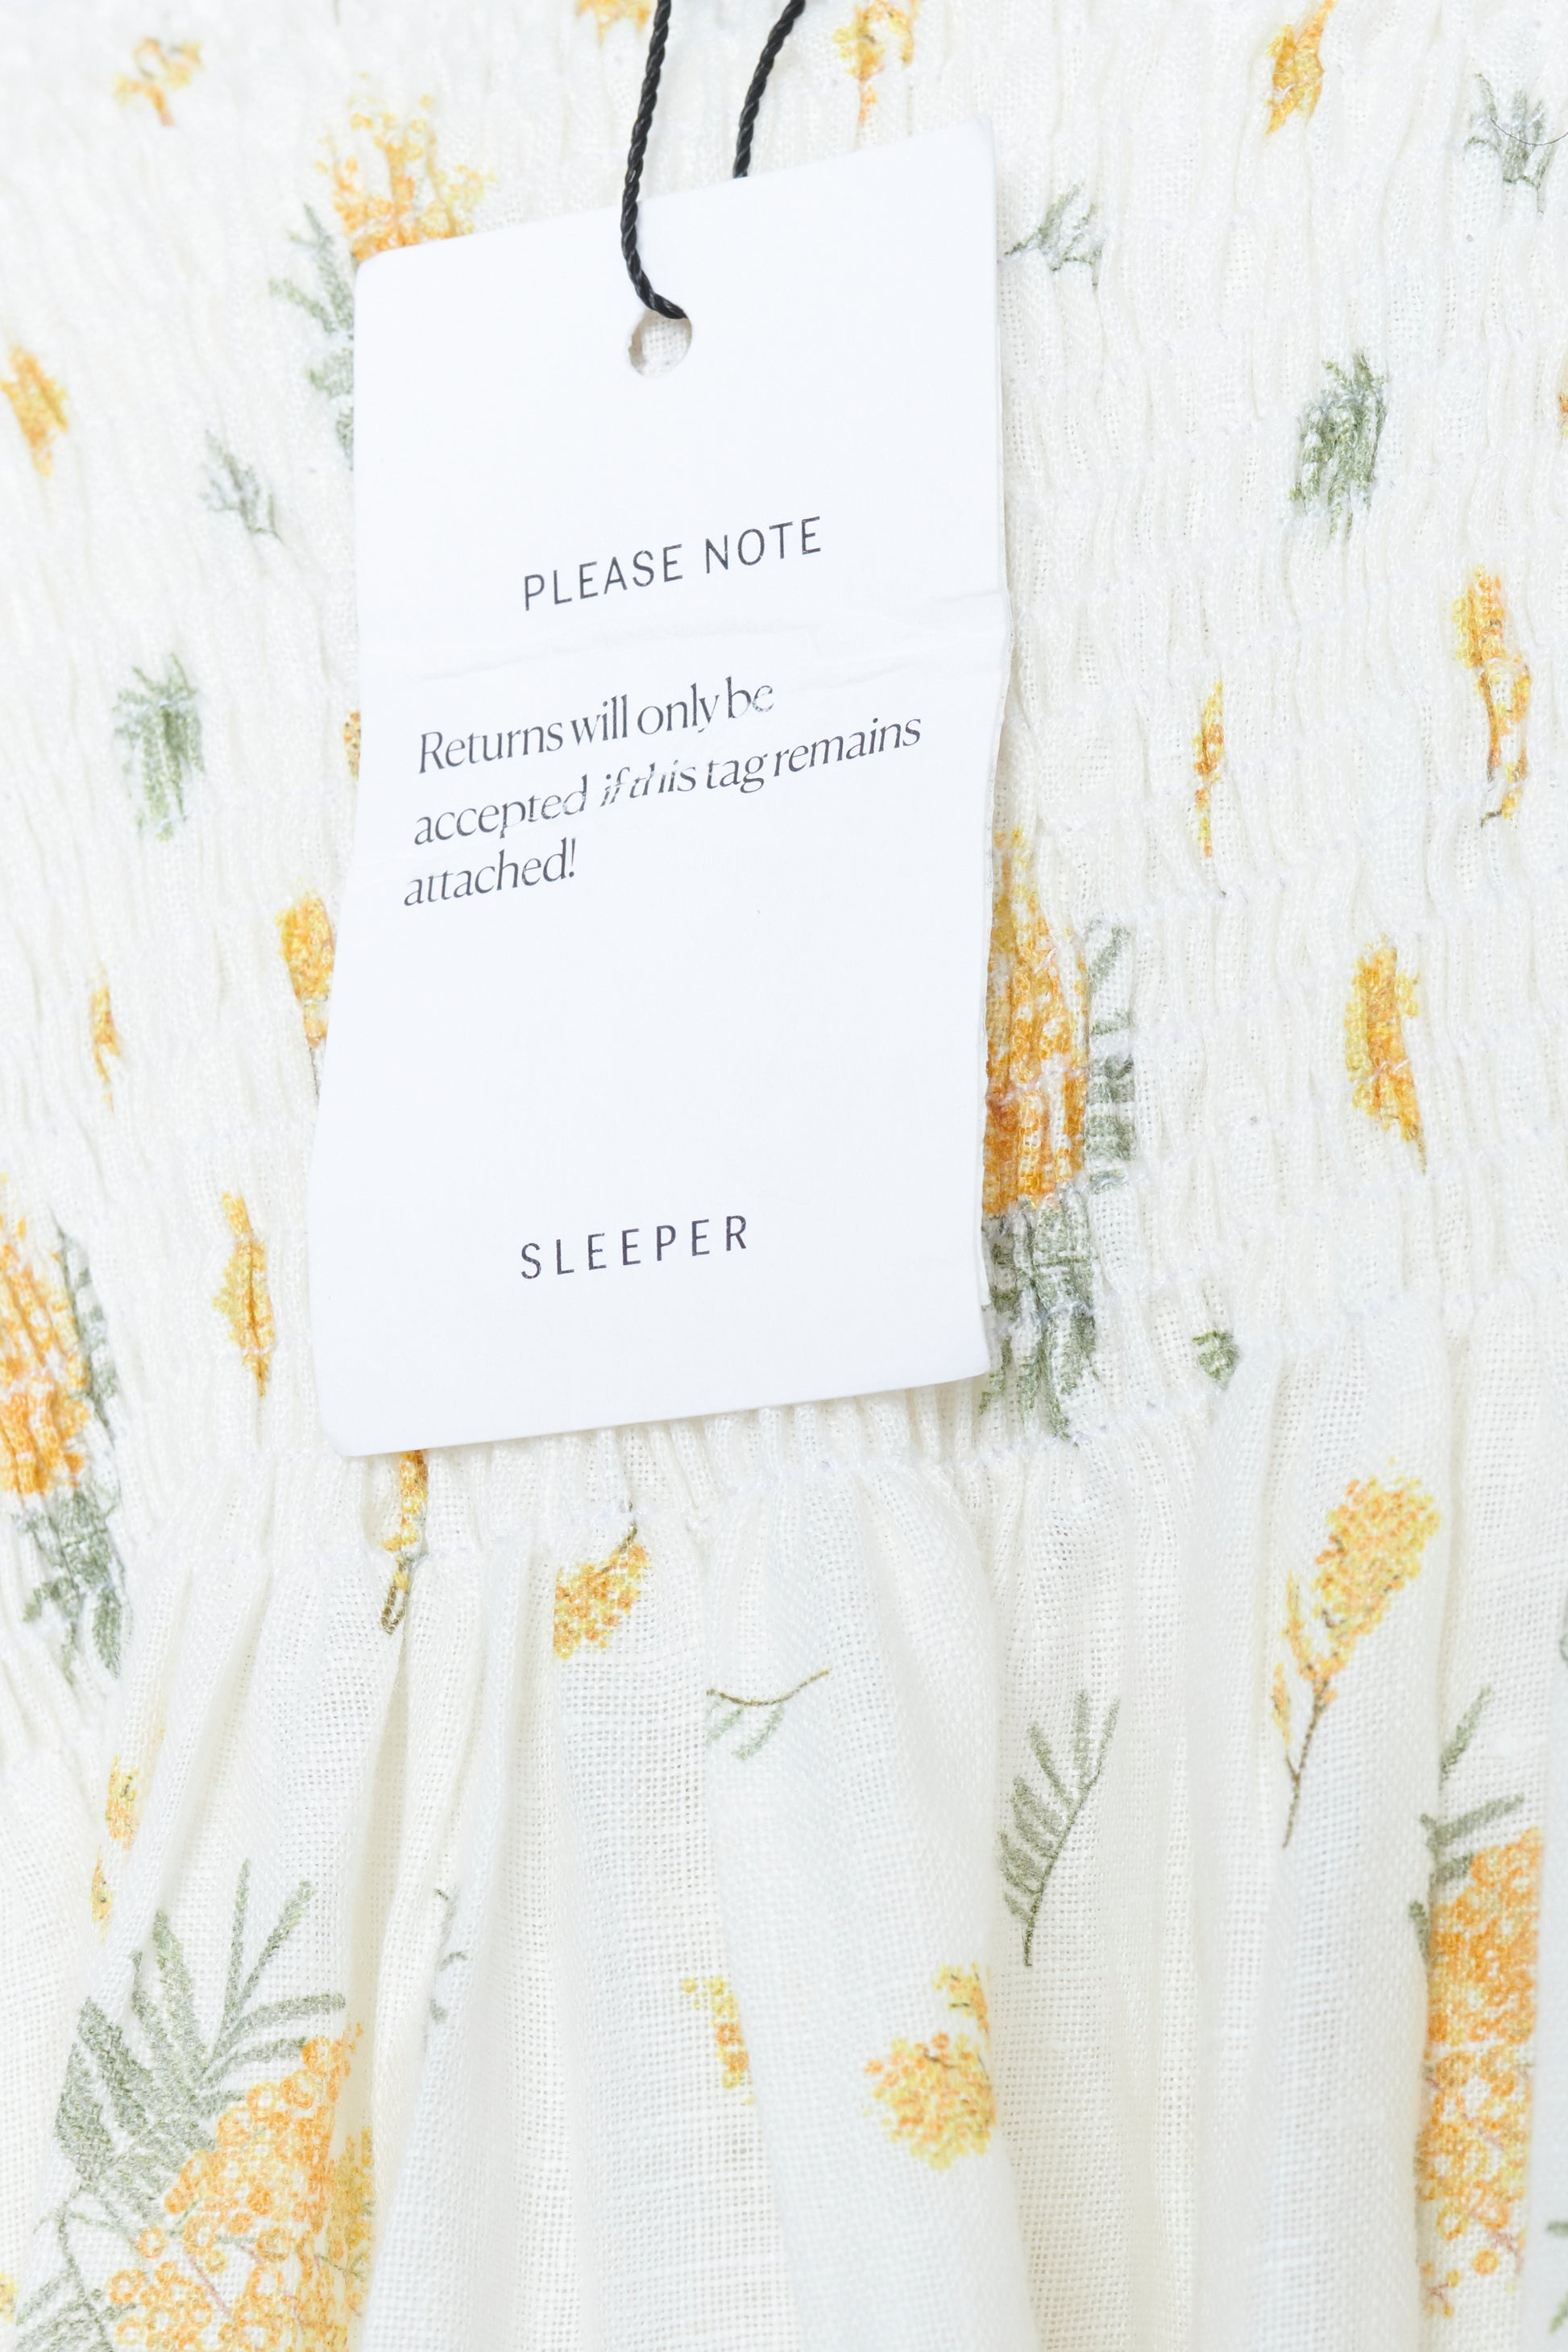 PLEASE NOTE
Returns will only be
accepted if this tag remains
attached!
SLEEPER